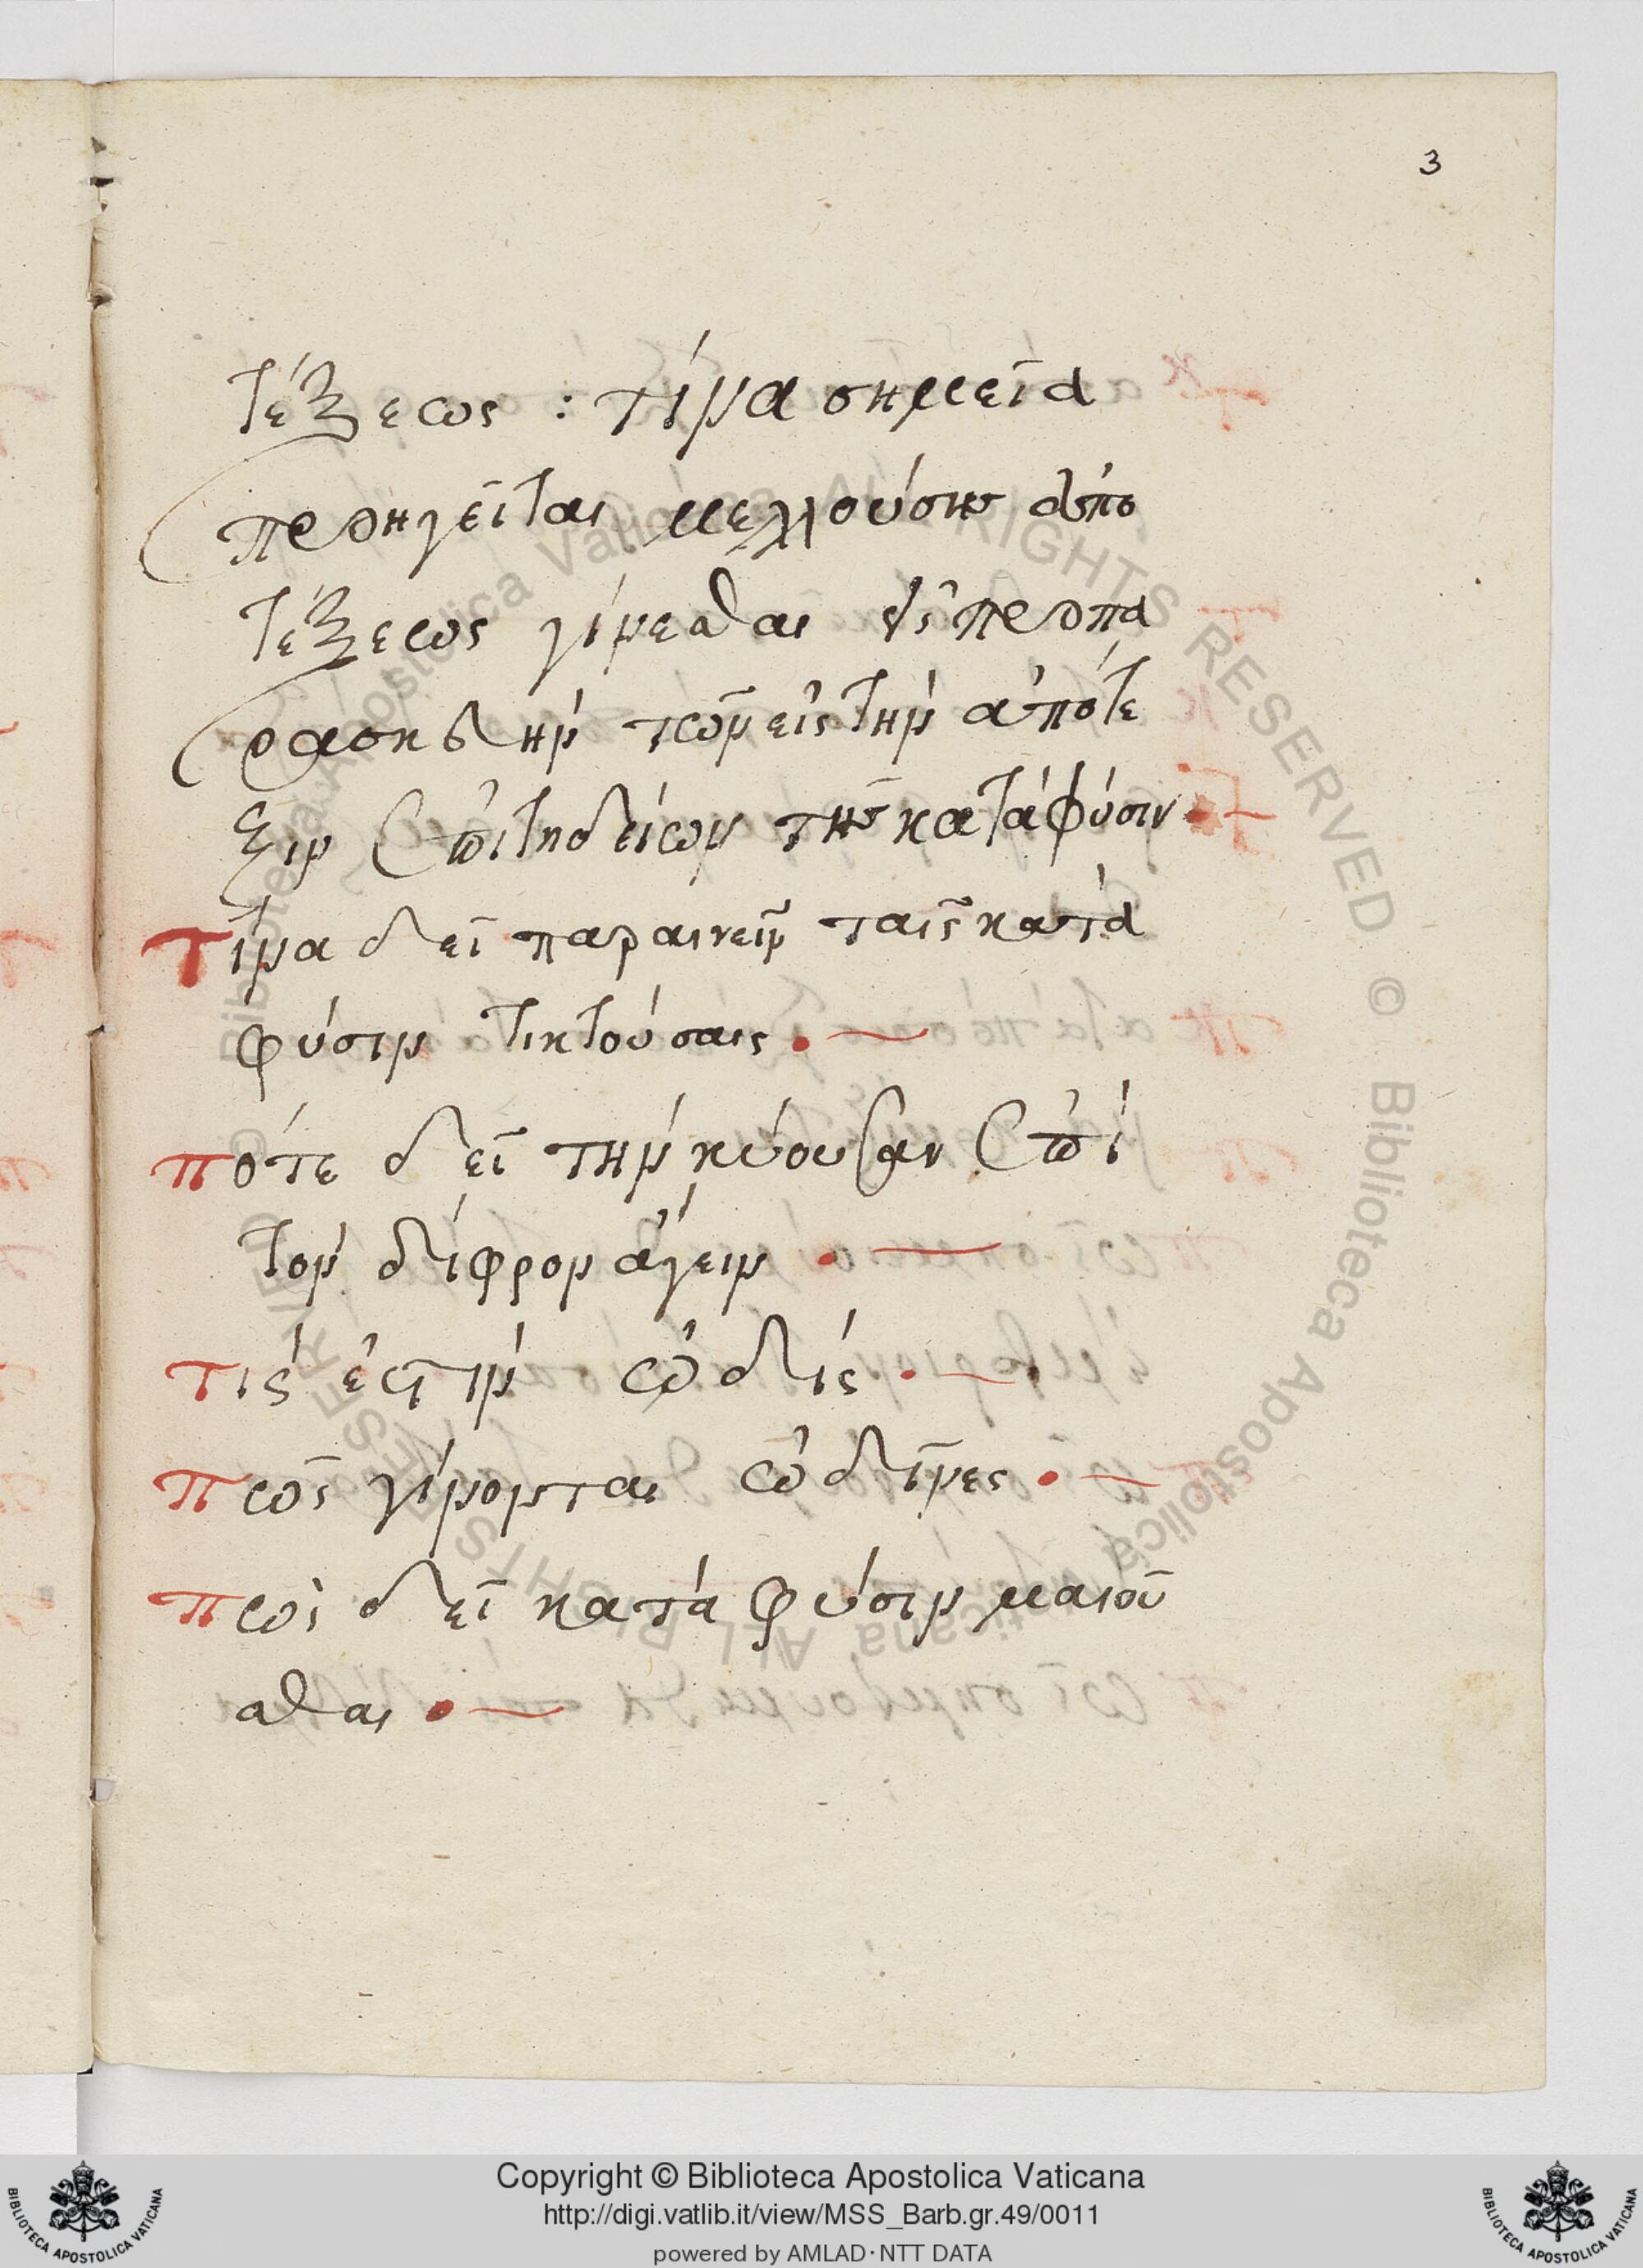 3
τέξεως : τίνα σημεῖα
προηγεῖται μελλούσης ἀπο
τέξεως γίνεσθαι καὶ προπα
ρασκευὴν τῶν εἰς τὴν ἀπότε
ξιν ἐπιτηδείων τῆς κατὰ φύσιν
τίνα δεῖ παραινεῖν ταῖς κατὰ
φύσιν τικτούσαις.
πότε δεῖ τὴν κύουσαν ἐπὶ
τὸν δίφρον ἄγειν.
τίς ἐστὶν ὠδίς.
πῶς γίνονται ὠδῖνες.
πῶς δεῖ κατὰ φύσιν μαιοῦ
σθαι.
© Biblioteca Apostolica Vaticana ALL RIGHTS RESERVED © Biblioteca Apostolica Vaticana ALL RIGHTS RESERVED
Copyright © Biblioteca Apostolica Vaticana
http://digi.vatlib.it/view/MSS_Barb.gr.49/0011
powered by AMLAD·NTT DATA
BIBLIOTECA APOSTOLICA VATICANA
BIBLIOTECA APOSTOLICA VATICANA